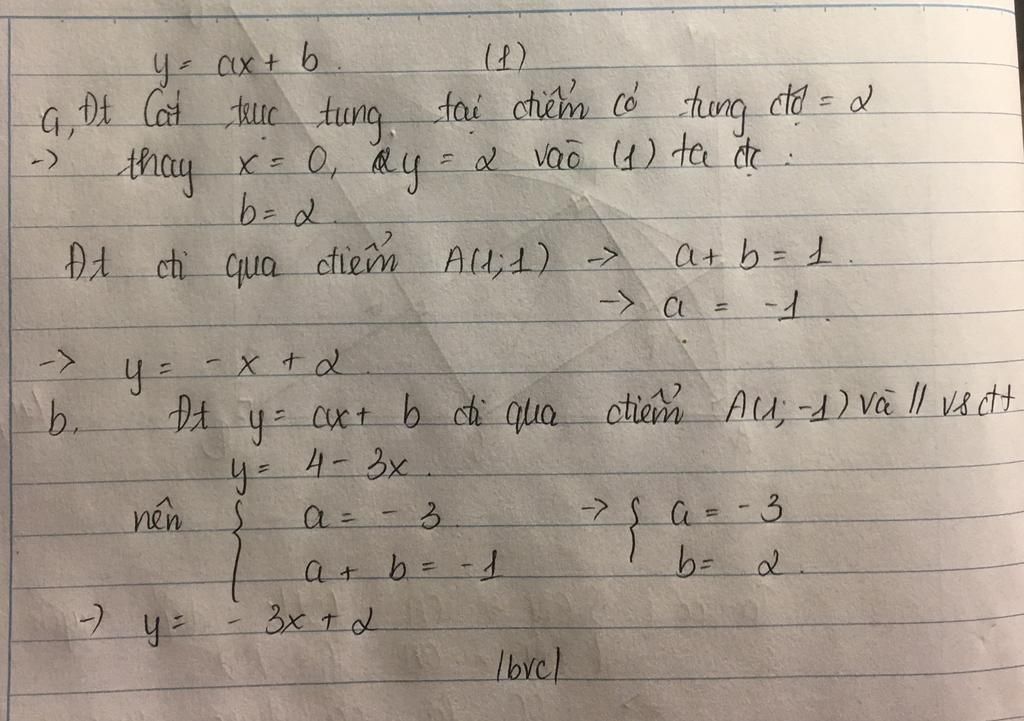 y = ax + b. (1)
a, Đt Cắt trục tung tại điểm có tung độ = 2
-> thay x = 0, y = 2 vào (1) ta đc :
b = 2.
Đt đi qua điểm A(1;1) -> a + b = 1.
-> a = -1.
-> y = - x + 2
b. Đt y = ax + b đi qua điểm A(1; -1) và // vs đt
y = 4 - 3x.
nên { a = - 3 -> { a = - 3
a + b = -1 b = 2.
-> y = - 3x + 2
|bvc|